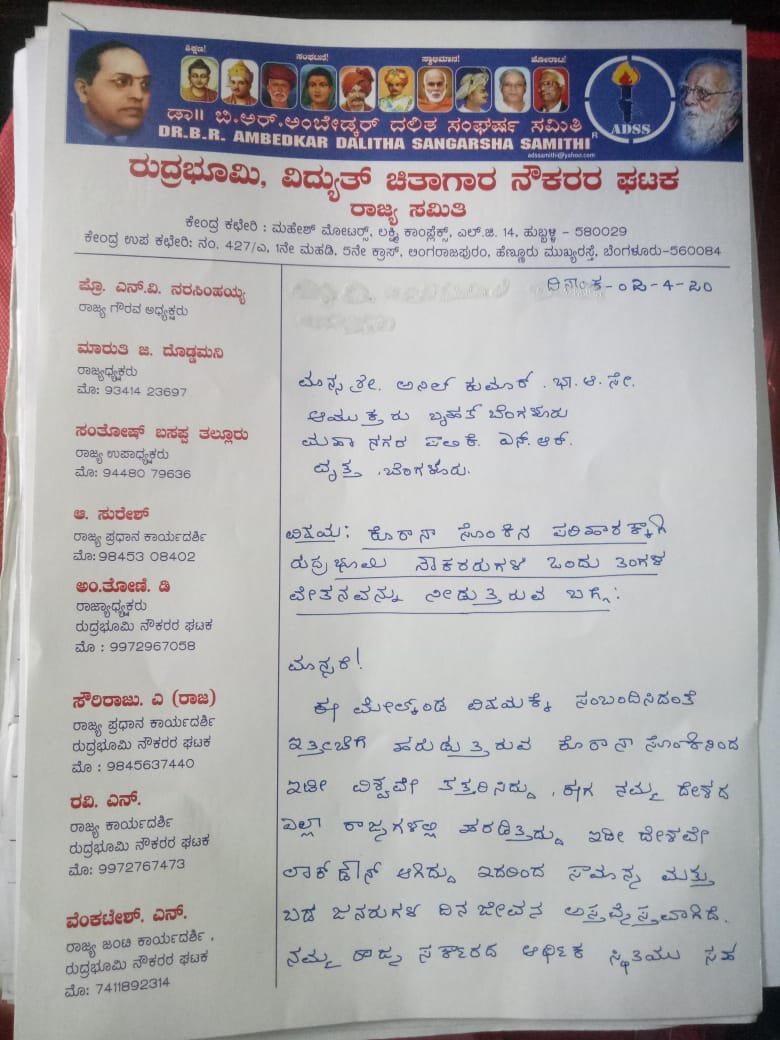 ಶಿಕ್ಷಣ! ಸಂಘಟನೆ! ಸ್ವಾಭಿಮಾನ! ಹೋರಾಟ!
ಡಾ॥ ಬಿ.ಆರ್.ಅಂಬೇಡ್ಕರ್ ದಲಿತ ಸಂಘರ್ಷ ಸಮಿತಿ
DR.B.R. AMBEDKAR DALITHA SANGARSHA SAMITHI R
ADSS
adssamithi@yahoo.com
ರುದ್ರಭೂಮಿ, ವಿದ್ಯುತ್ ಚಿತಾಗಾರ ನೌಕರರ ಘಟಕ
ರಾಜ್ಯ ಸಮಿತಿ
ಕೇಂದ್ರ ಕಛೇರಿ : ಮಹೇಶ್ ಮೋಟರ್ಸ್, ಲಕ್ಷ್ಮಿ ಕಾಂಪ್ಲೆಕ್ಸ್, ಎಲ್.ಜಿ. 14, ಹುಬ್ಬಳ್ಳಿ - 580029
ಕೇಂದ್ರ ಉಪ ಕಛೇರಿ: ನಂ. 427/ಎ, 1ನೇ ಮಹಡಿ, 5ನೇ ಕ್ರಾಸ್, ಲಿಂಗರಾಜಪುರಂ, ಹೆಣ್ಣೂರು ಮುಖ್ಯರಸ್ತೆ, ಬೆಂಗಳೂರು-560084
ಪ್ರೊ. ಎನ್.ವಿ. ನರಸಿಂಹಯ್ಯ
ರಾಜ್ಯ ಗೌರವ ಅಧ್ಯಕ್ಷರು
ಮಾರುತಿ ಜಿ. ದೊಡ್ಡಮನಿ
ರಾಜ್ಯಧ್ಯಕ್ಷರು
ಮೊ: 93414 23697
ಸಂತೋಷ್ ಬಸಪ್ಪ ತಲ್ಲೂರು
ರಾಜ್ಯ ಉಪಾಧ್ಯಕ್ಷರು
ಮೊ: 94480 79636
ಆ. ಸುರೇಶ್
ರಾಜ್ಯ ಪ್ರಧಾನ ಕಾರ್ಯದರ್ಶಿ
ಮೊ: 98453 08402
ಅಂ.ತೋಣಿ. ಡಿ
ರಾಜ್ಯಾಧ್ಯಕ್ಷರು
ರುದ್ರಭೂಮಿ ನೌಕರರ ಘಟಕ
ಮೊ : 9972967058
ಸೌರಿರಾಜು. ಎ (ರಾಜ)
ರಾಜ್ಯ ಪ್ರಧಾನ ಕಾರ್ಯದರ್ಶಿ
ರುದ್ರಭೂಮಿ ನೌಕರರ ಘಟಕ
ಮೊ : 9845637440
ರವಿ. ಎನ್.
ರಾಜ್ಯ ಕಾರ್ಯದರ್ಶಿ
ರುದ್ರಭೂಮಿ ನೌಕರರ ಘಟಕ
ಮೊ: 9972767473
ವೆಂಕಟೇಶ್. ಎನ್.
ರಾಜ್ಯ ಜಂಟಿ ಕಾರ್ಯದರ್ಶಿ .
ರುದ್ರಭೂಮಿ ನೌಕರರ ಘಟಕ
ಮೊ: 7411892314
ದಿನಾಂಕ-೦೨-4-೨೦
ಮಾನ್ಯ ಶ್ರೀ. ಅನಿಲ್ ಕುಮಾರ್. ಭಾ.ಆ.ಸೇ.
ಆಯುಕ್ತರು ಬೃಹತ್ ಬೆಂಗಳೂರು
ಮಹಾ ನಗರ ಪಾಲಿಕೆ. ಎನ್.ಆರ್.
ವೃತ್ತ, ಬೆಂಗಳೂರು.
ವಿಷಯ: ಕೊರಾನಾ ಸೋಂಕಿನ ಪರಿಹಾರಕ್ಕಾಗಿ
ರುದ್ರಭೂಮಿ ನೌಕರರುಗಳ ಒಂದು ತಿಂಗಳ
ವೇತನವನ್ನು ನೀಡುತ್ತಿರುವ ಬಗ್ಗೆ:
ಮಾನ್ಯರೆ!
ಈ ಮೇಲ್ಕಂಡ ವಿಷಯಕ್ಕೆ ಸಂಬಂದಿಸಿದಂತೆ
ಇತ್ತೀಚೆಗೆ ಹರುಡುತ್ತಿರುವ ಕೊರಾನಾ ಸೋಂಕಿನಿಂದ
ಇಡೀ ವಿಶ್ವವೇ ತತ್ತರಿಸಿದ್ದು, ಈಗ ನಮ್ಮ ದೇಶದ
ಎಲ್ಲಾ ರಾಜ್ಯಗಳಲ್ಲಿ ಹರಡಿತ್ತಿದ್ದು ಇಡೀ ದೇಶವೇ
ಲಾಕ್ ಡೌನ್ ಆಗಿದ್ದು ಇದರಿಂದ ಸಾಮಾನ್ಯ ಮತ್ತು
ಬಡ ಜನರುಗಳ ದಿನ ಜೀವನ ಅಸ್ತವ್ಯಸ್ತವಾಗಿದೆ.
ನಮ್ಮ ರಾಜ್ಯ ಸರ್ಕಾರದ ಆರ್ಥಿಕ ಸ್ಥಿತಿಯು ಸಹ